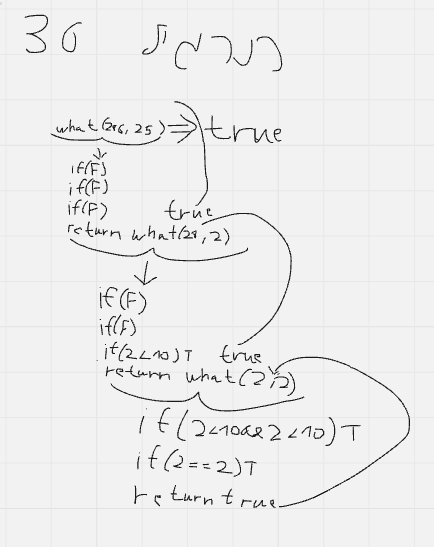 תרגיל 30
what(296, 25) ⇒ true
if(F)
if(F)
if(F) true
return what(29, 2)
if(F)
if(F)
if(2<10)T true
return what(2,2)
if(2<10&&2<10)T
if(2==2)T
return true